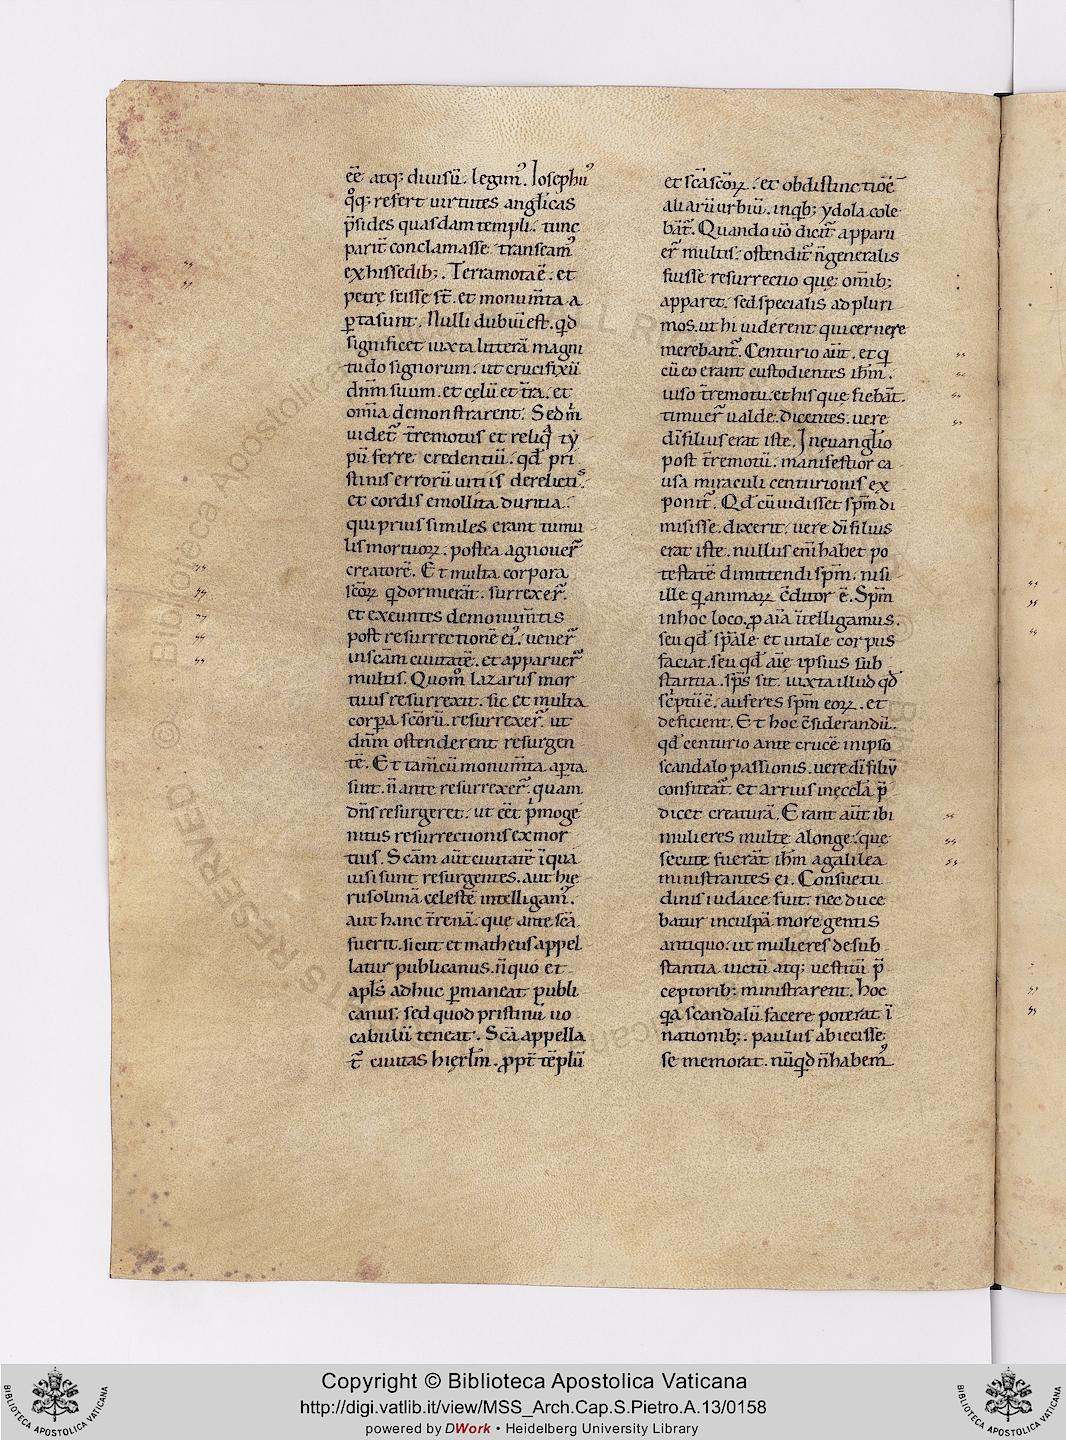 eē atq; diuisū. legim᾽. Josephu᾽
q̊q; refert uirtutes anglicas
p̄sides quasdam templi. tunc
parit̄ conclamasse transeam᾽
ex his sedib;. Terra mota ē. et
petrę scissę st̄. et monum̄ta a
ꝑta sunt. Nulli dubiū est. qđ
significet iuxta litterā magni
tudo signorum. ut crucifixū
dn̄m suum. et cęlū et t̄ra. et
om̄ia demonstrarent. Sed m̓
uidet̄ t̄remotus et reliq̓ ty
pū ferre credentiū. qđ pri
stinis errorū uitiis derelictis.
et cordis emollita duritia.
qui prius similes erant tumu
lis mortuoꝝ. postea agnouer̄
creatorē. Et multa corpora
sc̄oꝝ q̓ dormierāt. surrexer̄.
et exeuntes de monum̄tis
post resurrectionē ei᾽. uener̄
in sc̄am ciuitatē. et apparuer̄
multis. Quom̊ lazarus mor
tuus resurrexit. sic et multa
corꝑa sc̄orū. resurrexer̄. ut
dn̄m ostenderent resurgen
tē. Et tam̄ cū monum̄ta aꝑta
sint. n̄ ante resurrexer̄. quam
dn̄s resurgeret. ut eēt p̓moge
nitus resurrectionis ex mor
tuis. Sc̄am aūt ciuitatē ī qua
uisi sunt resurgentes. aut hie
rusolimā cęlestē intelligam᾽.
aut hanc t̄renā. quę ante sc̄a
fuerit. sicut et matheus appel
latur publicanus. n̄ quo et
apl̄s adhuc ꝑmaneat publi
canus. sed quod pristinū uo
cabulū teneat. Sc̄a appella
t̄ ciuitas hierl̄m. ꝓpt̄ tēplū
et sc̄a sc̄oꝝ. et ob distinctioē
aliarū urbiū. in qb; ydola cole
bāt̄. Quando ů dicit̄ apparu
er̄ multis. ostendit̄ n̄ generalis
fuisse resurrectio quę om̄ib;
apparet. sed specialis ad pluri
mos. ut hi uiderent qui cernere
merebant̄. Centurio aūt. et q̓
cū eo erant custodientes ih̄m.
uiso t̄remotu. et his quę fiebāt.
timuer̄ ualde. dicentes. uere
dī filius erat iste. In euanglio
post t̄remotū. manifestior ca
usa miraculi centurionis ex
ponit̄. Qđ cū uidisset sp̄m di
misisse. dixerit. uere dī filius
erat iste. nullus eni̅ habet po
testatē dimittendi sp̄m. nisi
ille q̓ animaꝝ c̄ditor ē. Sp̄m
in hoc loco. ꝓ aīa īntelligamus.
seu qđ sp̄ale et uitale corpus
faciat. seu qđ aīę ipsius sub
stantia. sp̄s sit. iuxta illud qđ
sc̓ptū ē. auferes sp̄m eoꝝ. et
deficient. Et hoc c̄siderandū.
qđ centurio ante crucē in ipso
scandalo passionis. uere dī filiū
confiteat̄. et arrius in ęccl̄a p̄
dicet creaturā. Erant aūt ibi
mulieres multę a longe. que
secutę fuerāt ih̄m a galilea
ministrantes ei. Consuetu
dinis iudaice fuit. nec duce
batur in culpā more gentis
antiquo. ut mulieres de sub
stantia uictū atq; uestitū p̄
ceptorib; ministrarent. hoc
q̓a scandalū facere poterat ī
nationib;. paulus abiecisse
se memorat. nūq̓d n̄ habem᾽
Copyright © Biblioteca Apostolica Vaticana
http://digi.vatlib.it/view/MSS_Arch.Cap.S.Pietro.A.13/0158
powered by DWork • Heidelberg University Library